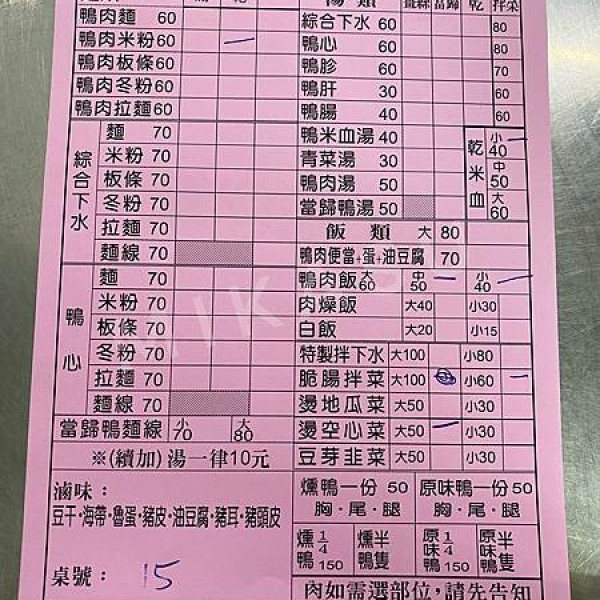 湯類 薑絲 當歸 乾 拌菜
鴨肉麵 60
鴨肉米粉 60
鴨肉板條 60
鴨肉冬粉 60
鴨肉拉麵 60
綜合下水
麵 70
米粉 70
板條 70
冬粉 70
拉麵 70
麵線 70
鴨心
麵 70
米粉 70
板條 70
冬粉 70
拉麵 70
麵線 70
當歸鴨麵線 小70 大80
※(續加)湯一律10元
滷味：
豆干·海帶·魯蛋·豬皮·油豆腐·豬耳·豬頭皮
桌號： 15
綜合下水 60 80
鴨心 60 80
鴨胗 60 70
鴨肝 30 60
鴨腸 40 60
鴨米血湯 40
青菜湯 30
鴨肉湯 50
當歸鴨湯 50
乾米血
小40
中50
大60
飯類 大 80
鴨肉便當+蛋+油豆腐 70
鴨肉飯 大60 中50 小40
肉燥飯 大40 小30
白飯 大20 小15
特製拌下水 大100 小80
脆腸拌菜 大100 小60
燙地瓜菜 大50 小30
燙空心菜 大50 小30
豆芽韭菜 大50 小30
燻鴨一份 50
胸·尾·腿
原味鴨一份 50
胸·尾·腿
燻鴨 1/4 150
燻鴨半隻
原味鴨 1/4 150
原味鴨半隻
內如需選部位,請先告知